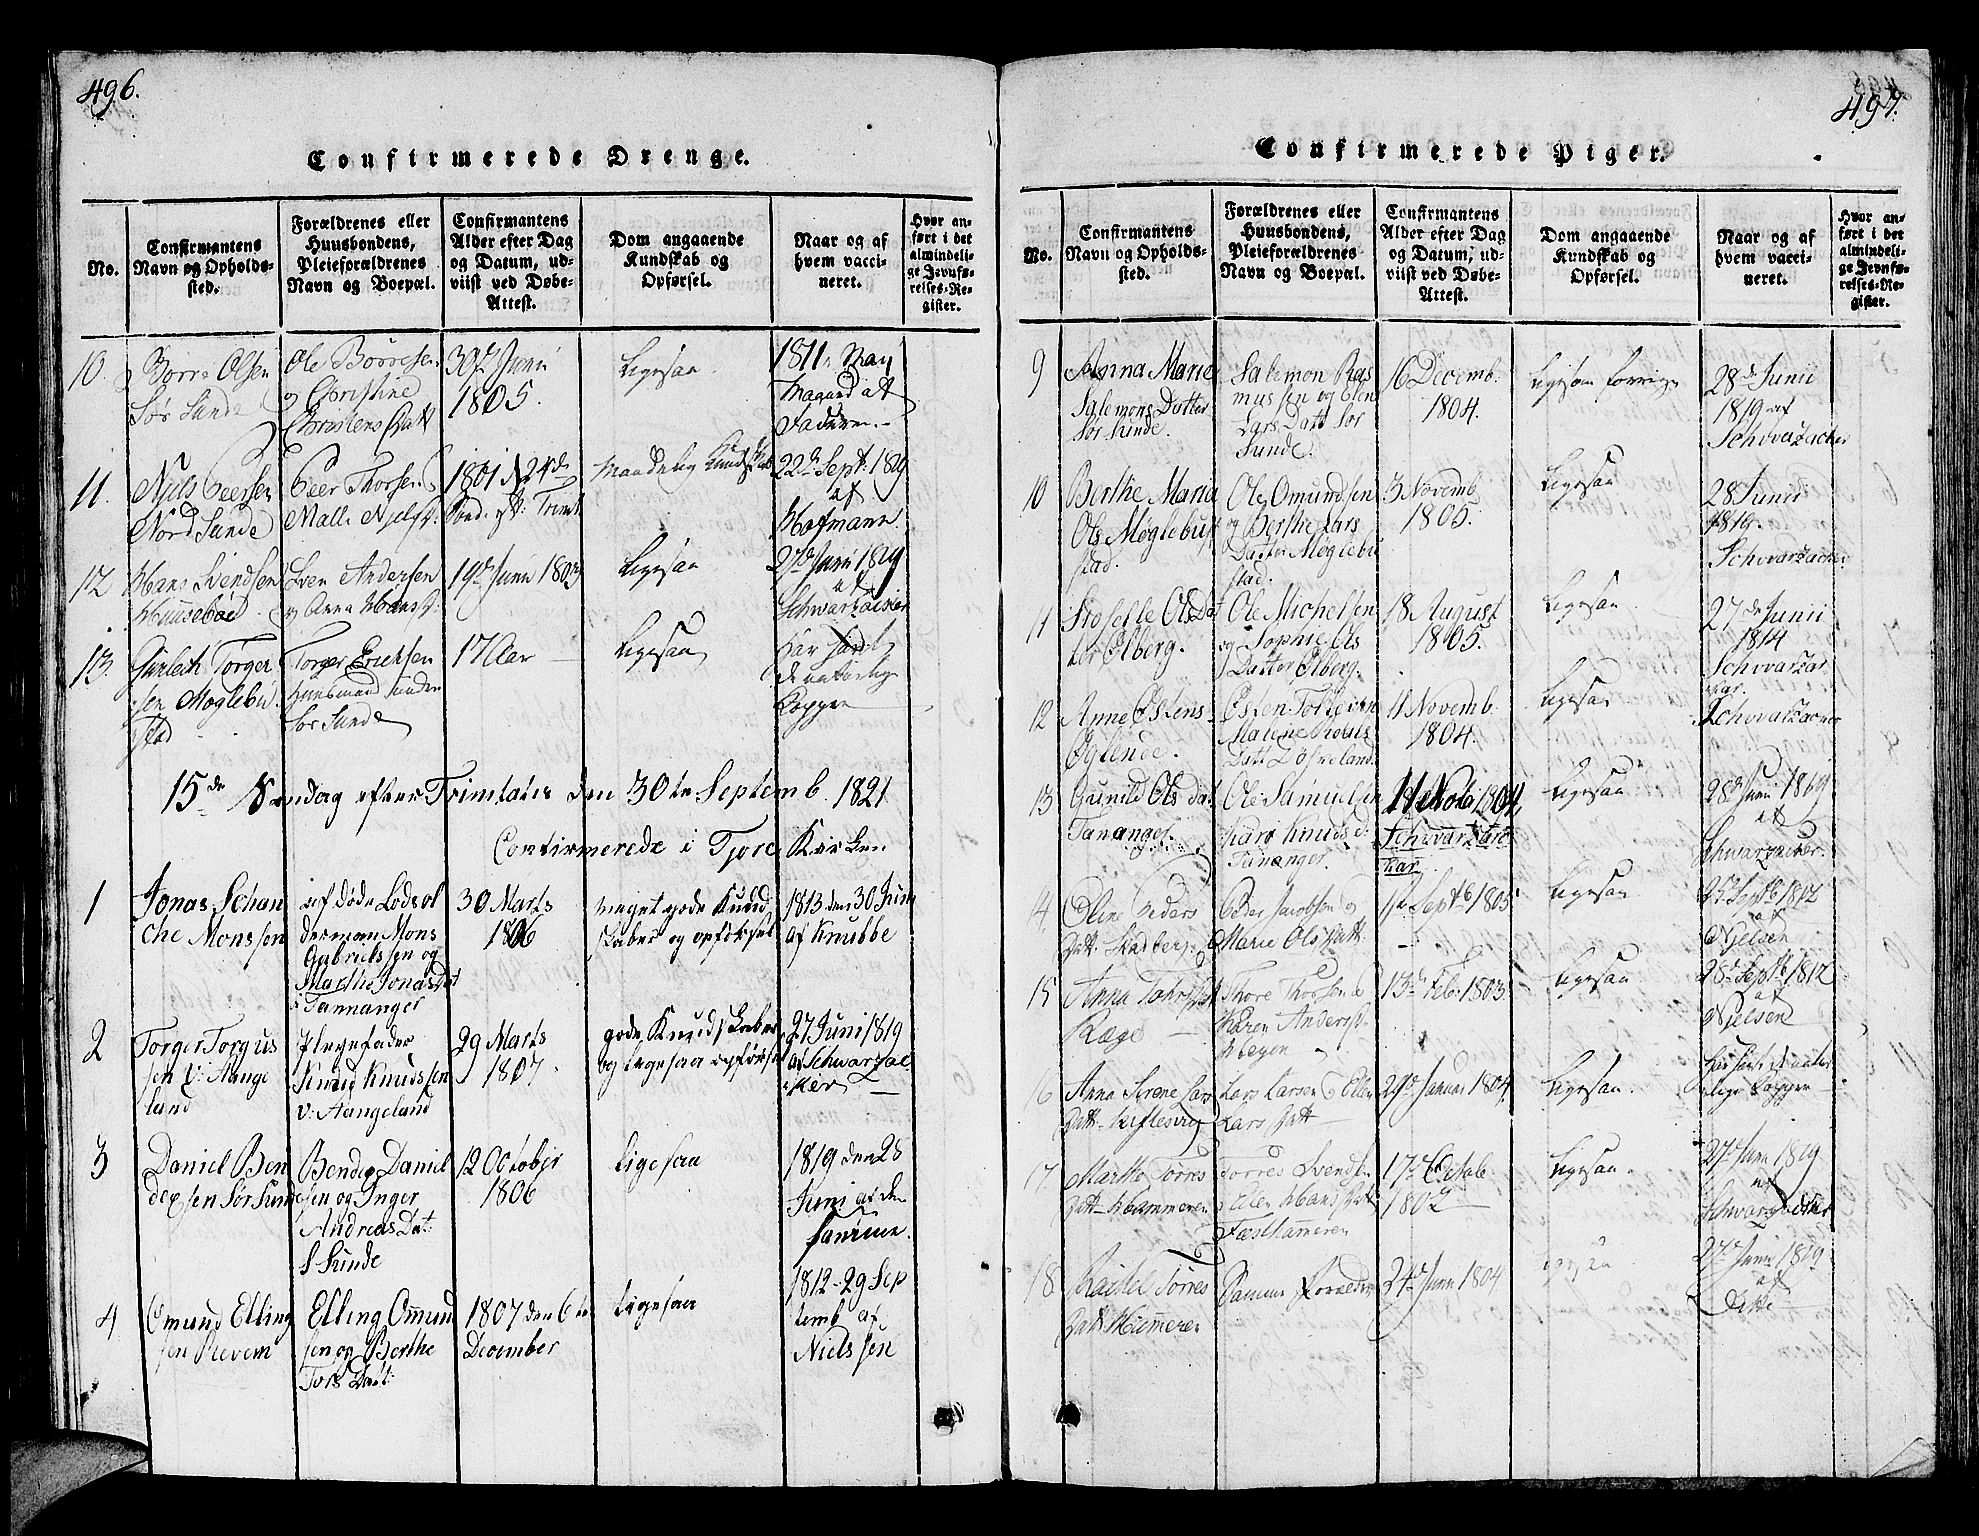 496.
Confirmerede Drenge.
No.
Confirmantens
Navn og Opholds-
sted.
Forældrenes eller
Huusbondens,
Pleieforældrenes
Navn og Boepæl.
Confirmantens
Alder efter Dag
og Datum, ud-
viist ved Døbe-
Attest.
Dom angaaende
Kundskab og
Opførsel.
Naar og af
hvem vacci-
neret.
Hvor an-
ført i det
almindeli-
ge Jevnfø-
relses-Re-
gister.
10.
Børre Olsen
Sør Sunde
Ole Børresen
og Christine
Christens Datt
30 Junii
1805.
Ligesaa
1811. May
af
Faderen.
11.
Njels Peersen
Nord Sunde
Peer Thorsen
Malle Njels
1801 24de
Maadelig Kundskab
22de Sept: 1819
af
Hofmann
12
Hans Svendsen
Huusebøe
Sven Andersen
og Anna Hans
19de Junii 1803
Ligesaa
27de Juni 1819
af
13.
Torger
sen Møglebu
stad
Torger Erichsen
Huusmand under
Sør Sunde
17 Aar
Ligesaa
har havt
de naturlige
Kopper
15de Søndag efter Trinitatis den 30te Septemb. 1821
Confirmerede i Tjore Kirken
1
Jonas Schan
che Monssen
af døde Lods ol
derman Mons
Gabrielssen og
Marthe Jonas Dat
Tannanger
30 Marts
1806
meget gode Kund
skaber og opførsel
1813 den 30 Juni
af Knubbe
2
Torger Torgus
sen v: Aange
land
Plegefader
Knud Knudssen
v: Aangeland
29 Marts
1807
gode Kundskaber
og ligesaa opførsel
27 Juni 1819
af Schwarzac
ker
3
Daniel Ben
dixsen Sør Sunde
Bendix Daniel
sen og Inger
Andreas Dat:
S Sunde
12 October
1806
ligesaa
1819 den 28
Juni af den
samme.
4
Omund Elling
sen Revem
Elling Ommund
sen og Berthe
Tors Dat:
1807 den 6te
December
ligesaa
1812-29 Sep
temb af
Nielssen
497.
Confirmerede Piger.
No.
Confirmantens
Navn og Opholds-
sted.
Forældrenes eller
Huusbondens,
Pleieforældrenes
Navn og Boepæl.
Confirmantens
Alder efter Dag
og Datum, ud-
viist ved Døbe-
Attest.
Dom angaaende
Kundskab og
Opførsel.
Naar og af
hvem vacci-
neret.
Hvor an-
ført i det
almindeli-
ge Jevnfø-
relses-Re-
gister.
9
Anna Marie
Salemons Datter
Sør Sunde.
Salemon Ras
mussen og Elen
Lars Datt Sør
Sunde.
16 Decemb.
1804.
Ligesom forrige
28de Junii
1819 af
Schvarzacher
10
Berthe Maria
Ols Møglebu
stad.
Ole Omundsen
og Berthe Lars
Datter Møglebu
stad.
3 Novemb
1805.
Ligesaa
28 Junii
1819.
Schvarzacher
11
Ols Dat
ter Ølberg.
Ole Michelsen
og Sophie Ols
Datter Ølberg.
18 August
1805.
Ligesaa
27de Junii
1814
Schvarzac
ker.
12
Anne Østens
Øglende.
Østen
Malene
Datt
11 Novemb.
1804.
Ligesaa
Schvarzacher
13
Gunild Ols dat
Tananger.
Ole Samuelsen
Karo Knuds d:
Tananger.
11 1804,
Schvarzac
kar.
Ligesaa
28de Juni 1819
af
Schwarzacker.
14.
Oline Peders
Datt. Skadberg.
Peder Jacobsen og
Marie Ols Datt.
1st Septb 1805
Ligesaa
25de Septb 1812
af
Njelsen
15
Anna
Ræge
Thore Thorsen
Karen Anders
13de Feb. 1803.
Ligesaa
28de Septb 1812
af
Njelsen
16
Anna Sirene Lars
Datt.
Lars Larsen og Ellen
Lars Datt
1804
Ligesaa.
har havt de natur
lige Kopper
17
Martha Torres
Datt. Hammeren
Torres Svends
Elen Hans Datt
17de Octob
1802
Ligesaa.
27de Juni 1819
af
Schwarzacker
18
Rachel Torres
Datt Hammeren
Samme Forældre
1804
Ligesaa
27de Juni 1819
af
Ditto